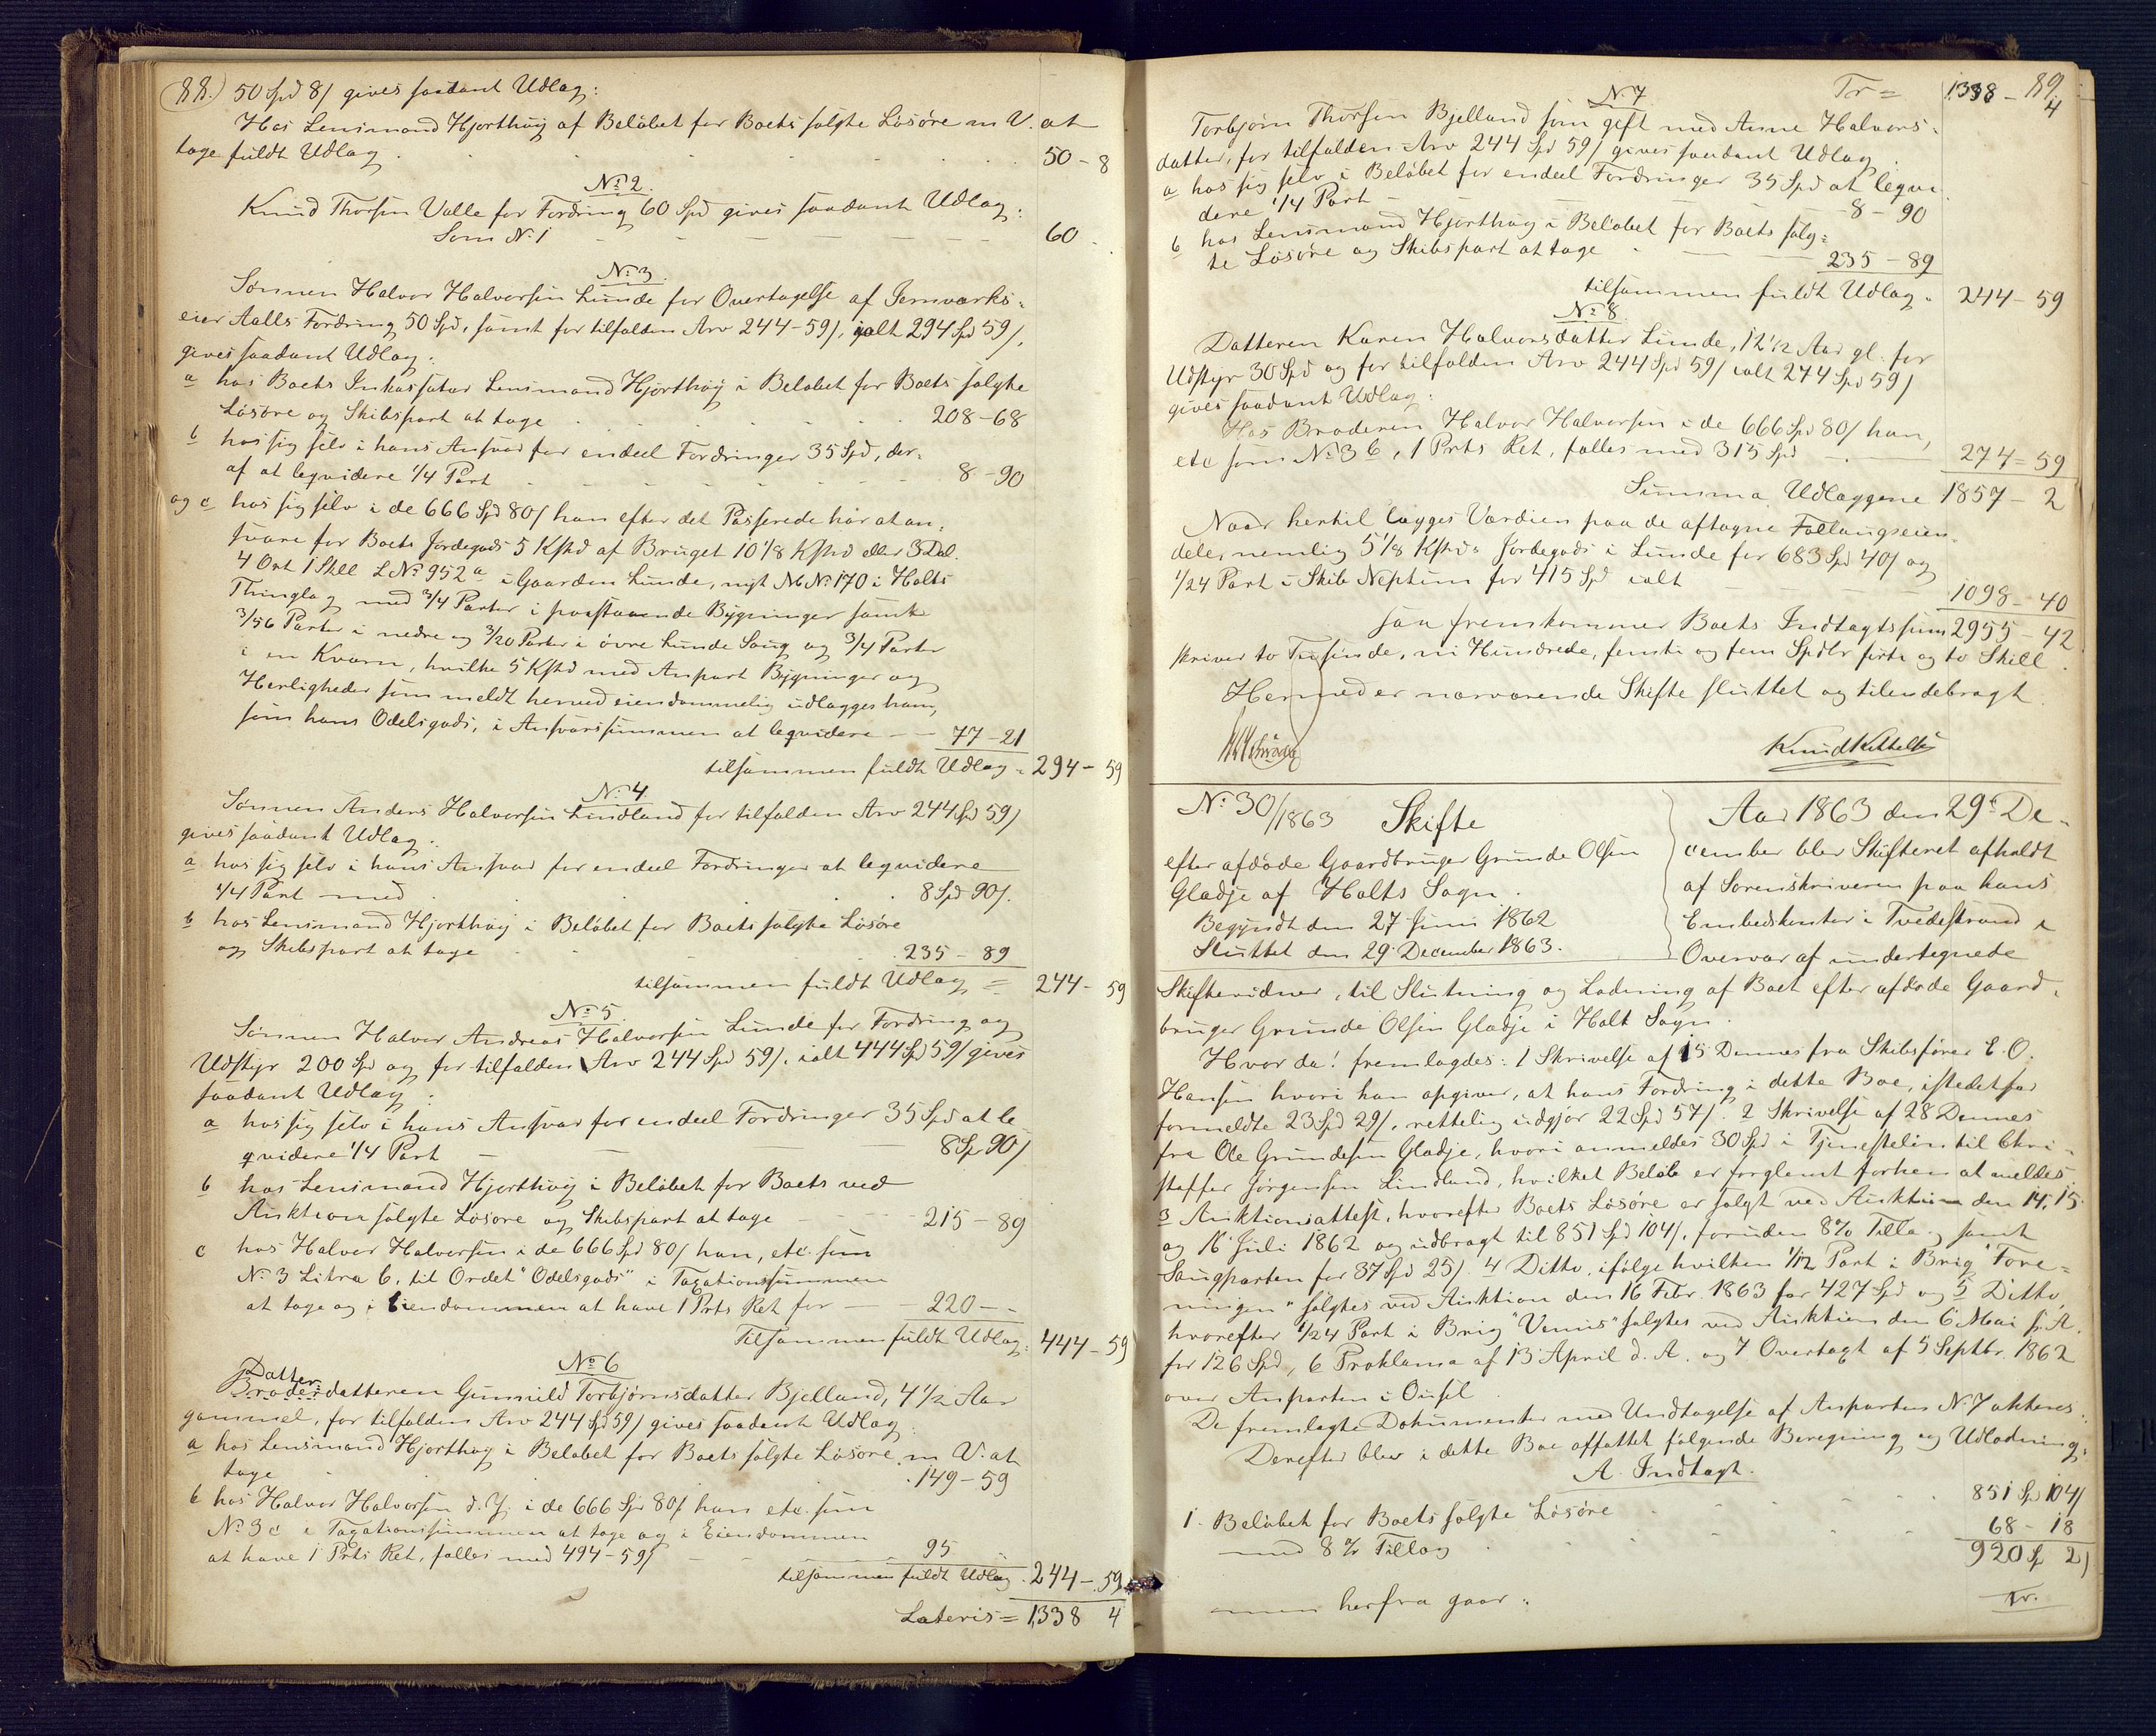 88.) 50 Spd 8/ gives saadant Udlag:
Hos Lensmand Hjorthøy af Beløbet for Boets solgte Løsøre m V. at
tage fuldt Udlag . . . 50 - 8
No 2.
Knud Thorsen Valle for Fordring 60 Spd gives saadant Udlag:
Som No 1 - - - - 60 -
No 3.
Sønnen Halvor Halvorsen Lunde for Overtagelse af Jernværks=
eier Aalls Fordring 50 Spd, samt for tilfalden Arv 244-59/, ialt 294 Spd 59/,
gives saadant Udlag:
a hos Boets Inkassator Lensmand Hjorthøy i Beløbet for Boets solgte
Løsøre og Skibspart at tage . . . 208-68
b hos sig selv i hans Ansvar for endeel Fordringer 35 Spd, der=
af at leqvidere 1/4 Part - - - 8-90
og c hos sig selv i de 666 Spd 80/ han efter det Passerede har at an=
svare for Boets Jordegods 5 Kfskd af Bruget 10 1/8 Kfskd eller 3 Dal.
4 Ort 1 Skill LNo 952 a i Gaarden Lunde, nyt MNo 170 i Holts
Thinglag med 3/4 Parter i paastaaende Bygninger samt
3/56 Parter i nedre og 3/20 Parter i øvre Lunde Saug og 3/4 Parter
i en Kværn, hvilke 5 Kfskd med Anpart Bygninger og
Herligheder som meldt herved eiendommelig udlægges ham,
som hans Odelsgods, i Ansvarssummen at leqvidere - - 77-21
tilsammen fuldt Udlag = 294 - 59
No 4.
Sønnen Anders Halvorsen Lindland for tilfalden Arv 244 Spd 59/
gives saadant Udlag:
a hos sig selv i hans Ansvar for endeel Fordringer at leqvidere
1/4 Part med . . . 8 Spd 90/.
b hos Lensmand Hjorthøy i Beløbet for Boets solgte Løsøre
og Skibspart at tage . . . 235 - 89
tilsammen fuldt Udlag = 244 - 59
No 5.
Sønnen Halvor Andreas Halvorsen Lunde for Fordring og
Udstyr 200 Spd og for tilfalden Arv 244 Spd 59/. ialt 444 Spd 59/ gives
saadant Udlag:
a hos sig selv i hans Ansvar for endeel Fordringer 35 Spd at le=
qvidere 1/4 Part - - - 8 Sp 90/
b hos Lensmand Hjorthøy i Beløbet for Boets ved
Auktion solgte Løsøre og Skibspart at tage - - - 215-89
c hos Halvor Halvorsen i de 666 Spd 80/ han, etc. som
No 3 Litra b, til Ordet "Odelsgods" i Taxationssummen
at tage og i Eiendommen at have 1 Prts Ret for - - 220 - -
Tilsammen fuldt Udlag: 444 - 59
No 6
Datter
Broderdatteren Gunnild Torbjørnsdatter Bjelland, 4 1/2 Aar
gammel, for tilfalden Arv 244 Spd 59/ gives saadant Udlag:
a hos Lensmand Hjorthøy i Beløbet for Boets solgte Løsøre m V. at
tage . . . 149-59
b hos Halvor Halvorsen d. Y. i de 666 Spd 80/ han etc. som
No 3 c i Taxationssummen at tage og i Eiendommen
at have 1 Prts Ret, fælles med 494-59/ - - - 95 -
tilsammen fuldt Udlag . 244 - 59
Lateris = 1338 4
Tr = 1338 - 4 89.
No 7
Torbjørn Thorsen Bjelland som gift med Anne Halvors=
datter, for tilfalden Arv 244 Spd 59/ gives saadant Udlag:
a hos sig selv i Beløbet for endeel Fordringer 35 Spd at leqvi
dere 1/4 Part - - - 8 - 90
b hos Lensmand Hjorthøy i Beløbet for Boets solg=
te Løsøre og Skibspart at tage - - - 235 - 89
tilsammen fuldt Udlag = 244 - 59
No 8.
Datteren Karen Halvorsdatter Lunde, 12 1/2 Aar gl. for
Udstyr 30 Spd og for tilfalden Arv 244 Spd 59/ ialt 274 Spd 59/
gives saadant Udlag:
Hos Broderen Halvor Halvorsen i de 666 Spd 80/ han,
etc som No 3 b, 1 Prts Ret, fælles med 315 Spd - - 274 - 59
Summa Udlæggene 1857 - 2
Naar hertil lægges Værdien paa de aftagne Follaugseien=
dele, nemlig 5 1/8 Kfskds Jordegods i Lunde for 683 Spd 40/ og
1/24 Part i Skib Neptun for 415 Spd ialt - - - 1098 - 40
saa fremkommer Boets Indtægtssum 2955 - 42
skriver to Tusinde, ni Hundrede, femti og fem Spdlr firti og to Skill.
Hermed er nærværende Skifte sluttet og tilendebragt.
Knud Kittelsen
No 30/1863 Skifte
efter afdøde Gaardbruger Grunde Olsen
Gladje af Holts Sogn.
Begyndt den 27 Juni 1862
Sluttet den 29 December 1863.
Aar 1863 den 29de De=
cember blev Skifteret afholdt
af Sorenskriveren paa hans
Embedskontor i Tvedestrand i
Overvær af undertegnede
Skiftevidner, til Slutning og Lodning af Boet efter afdøde Gaard=
bruger Grunde Olsen Gladje i Holt Sogn.
Hvor da! fremlagdes: 1 Skrivelse af 15 Dennes fra Skibsfører E. O.
Hansen hvori han opgiver, at hans Fordring i dette Boe, istedetfor
formeldte 23 Spd 29/, rettelig udgjør 22 Spd 57/. 2 Skrivelse af 28 Dennes
fra Ole Grundesen Gladje, hvori anmeldes 30 Spd i Tjenesteløn til Chri=
staffer Jørgensen Lindland, hvilket Beløb er forglemt forhen at meldes.
3 Auktionsattest, hvorefter Boets Løsøre er solgt ved Auktion den 14, 15
og 16 Juli 1862 og udbragt til 851 Spd 104/, foruden 8% Tillæg samt
Saugparten for 87 Spd 25/. 4 Ditto, ifølge hvilken 1/12 Part i Brig "Fore=
ningen" solgtes ved Auktion den 16 Febr. 1863 for 427 Spd og 5 Ditto,
hvorefter 1/24 Part i Brig "Venus" solgtes ved Auktion den 6 Mai s. A.
for 126 Spd, 6 Proklama af 13 April d. A. og 7 Overtagt af 5 Septbr. 1862
over Anparten i
De fremlagte Dokumenter med Undtagelse af Anparten No 7 akteres.
Derefter blev i dette Boe affattet følgende Beregning og Udlodning:
A. Indtægt.
1. Beløbet for Boets solgte Løsøre . . . 851 Sp 104/
med 8% Tillæg . . . 68 - 18
920 Sp 2/
men herfra gaar: Tr.